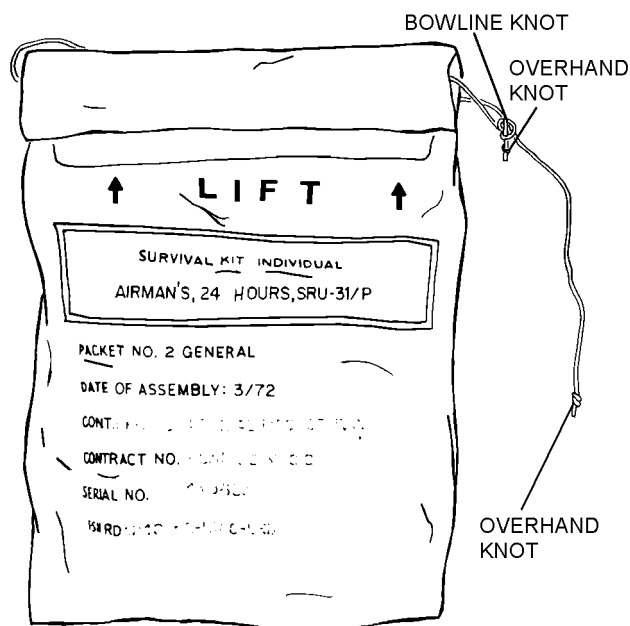 BOWLINE KNOT
OVERHAND
KNOT
LIFT
SURVIVAL KIT INDIVIDUAL
AIRMAN'S, 24 HOURS, SRU-31/P
PACKET NO. 2 GENERAL
DATE OF ASSEMBLY: 3/72
CONT.
CONTRACT NO.
SERIAL NO.
OVERHAND
KNOT